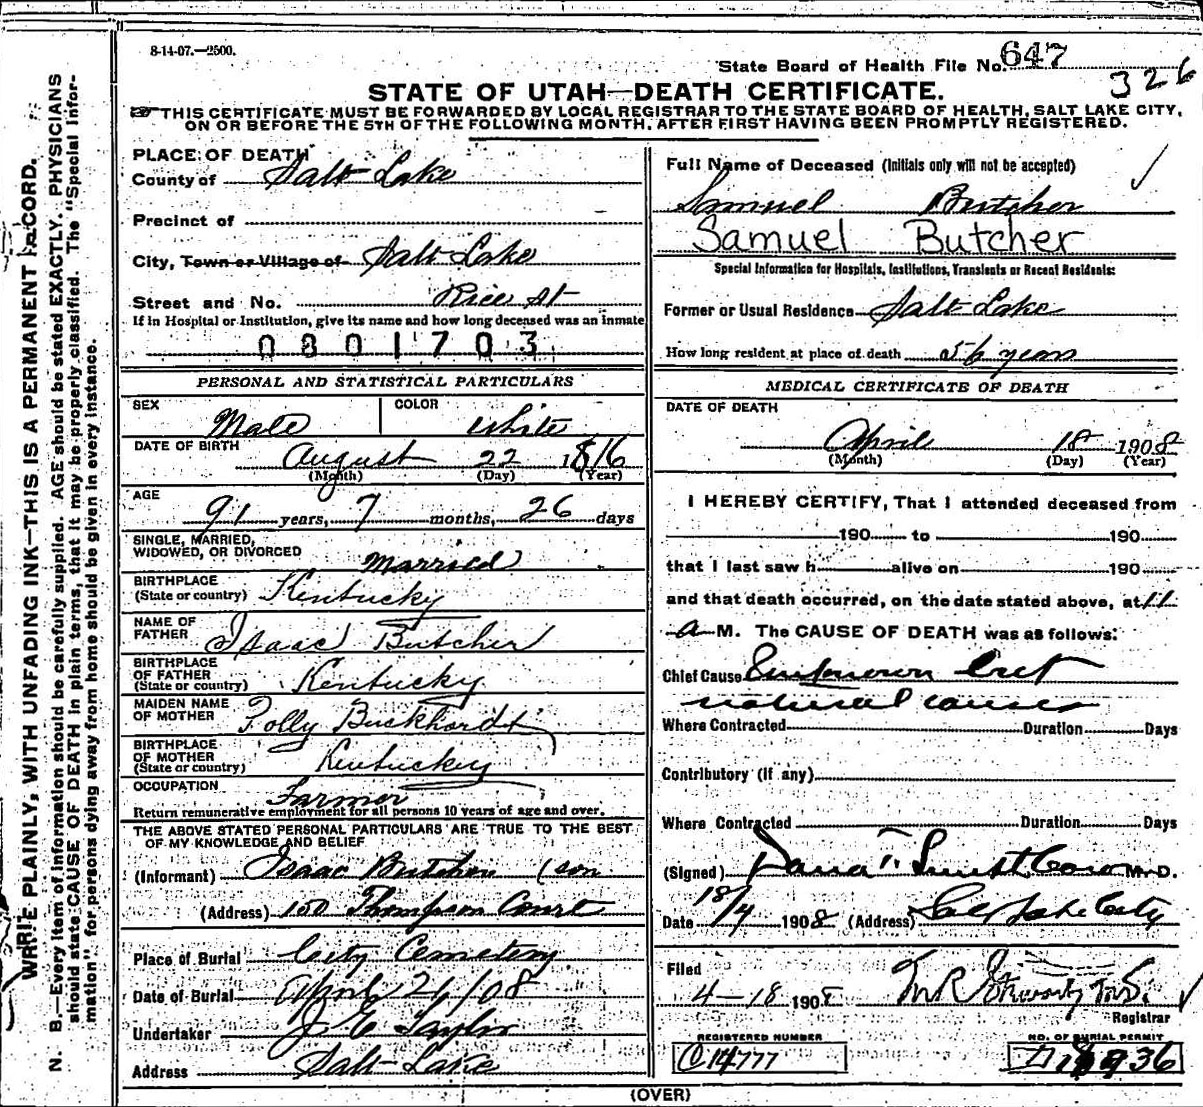 8-14-07.—2500.
State Board of Health File No. 647
326
STATE OF UTAH—DEATH CERTIFICATE.
THIS CERTIFICATE MUST BE FORWARDED BY LOCAL REGISTRAR TO THE STATE BOARD OF HEALTH, SALT LAKE CITY,
ON OR BEFORE THE 5TH OF THE FOLLOWING MONTH, AFTER FIRST HAVING BEEN PROMPTLY REGISTERED.
WRITE PLAINLY, WITH UNFADING INK—THIS IS A PERMANENT RECORD.
N. B.—Every item of information should be carefully supplied. AGE should be stated EXACTLY. PHYSICIANS
should state CAUSE OF DEATH in plain terms, that it may be properly classified. The "Special Infor-
mation" for persons dying away from home should be given in every instance.
PLACE OF DEATH
County of Salt Lake
Precinct of
City, Town or Village of Salt Lake
Street and No. Rice St
If in Hospital or Institution, give its name and how long deceased was an inmate
0801703
PERSONAL AND STATISTICAL PARTICULARS
SEX Male COLOR White
DATE OF BIRTH August 22 1816
(Month) (Day) (Year)
AGE
91 years, 7 months, 26 days
SINGLE, MARRIED,
WIDOWED, OR DIVORCED Married
BIRTHPLACE
(State or country) Kentucky
NAME OF
FATHER Isaac Butcher
BIRTHPLACE
OF FATHER
(State or country) Kentucky
MAIDEN NAME
OF MOTHER Polly Buckhardt
BIRTHPLACE
OF MOTHER
(State or country) Kentuckey
OCCUPATION Farmer
Return remunerative employment for all persons 10 years of age and over.
THE ABOVE STATED PERSONAL PARTICULARS ARE TRUE TO THE BEST
OF MY KNOWLEDGE AND BELIEF
(Informant) Isaac Butcher (son
(Address) 150 Thompson Court
Place of Burial City Cemetery
Date of Burial April 21/08
Undertaker J E Taylor
Address Salt Lake
Full Name of Deceased (Initials only will not be accepted)
Samuel Butcher
Samuel Butcher
Special Information for Hospitals, Institutions, Transients or Recent Residents:
Former or Usual Residence Salt Lake
How long resident at place of death 56 years
MEDICAL CERTIFICATE OF DEATH
DATE OF DEATH
April 18 1908
(Month) (Day) (Year)
I HEREBY CERTIFY, That I attended deceased from
190 to 190
that I last saw h alive on 190
and that death occurred, on the date stated above, at 11
a M. The CAUSE OF DEATH was as follows:
Chief Cause Unknown but
natural causes
Where Contracted Duration Days
Contributory (if any)
Where Contracted Duration Days
(Signed) M. D.
Date 18/4 1908 (Address) Salt Lake City
Filed
4-18 1908
Registrar
REGISTERED NUMBER
C 14777
NO. OF BURIAL PERMIT
(OVER)